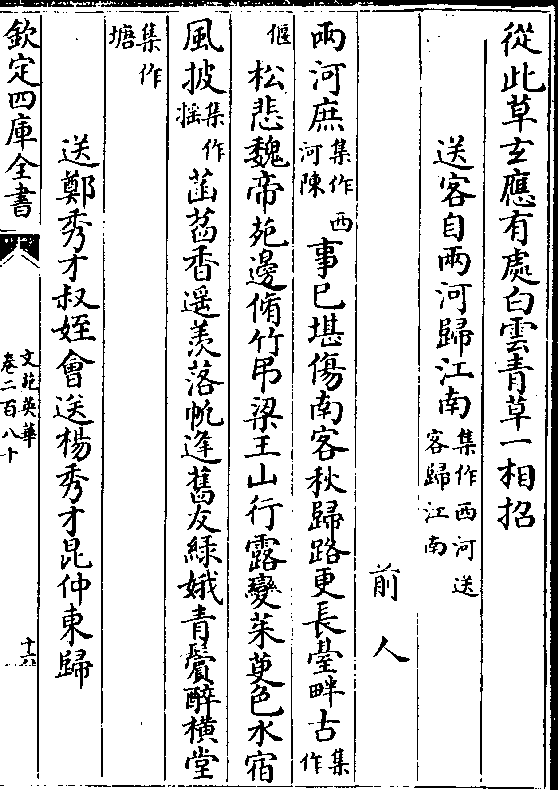 從此草玄應有處白雲青草一相招
送客自兩河歸江南集作西河送客歸江南
前人
兩河庶集作西河陳事已堪傷南客秋歸路更長臺畔古集作
偃松悲魏帝苑邊脩竹弔梁王山行露變茱萸色水宿
風披集作摇菡萏香遥羨落帆逢舊友綠娥青鬢醉横堂
集作塘
送鄭秀才叔姪會送楊秀才昆仲東歸
欽定四庫全書
文苑英華
卷二百八十
十六